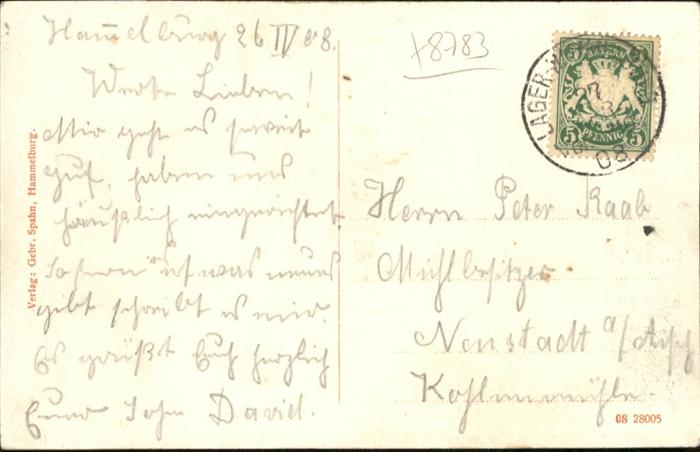 Hammelburg 26 IV 08.
Werte Lieben!
Mir geht es soweit
guf, haben uns
häußlich eingerichtet.
Sofern es was neues
gibt schreibt es mir.
Es grüßt Euch herzlich
Euer Sohn David.
Verlag: Gebr. Spahn, Hammelburg.
+8783
BAYERN
5 5
5 PFENNIG 5
LAGER
08
Herrn Peter Raab
Mühlbesitzer
Neustadt a/Aisch
Kohlenmühle.
08 28005